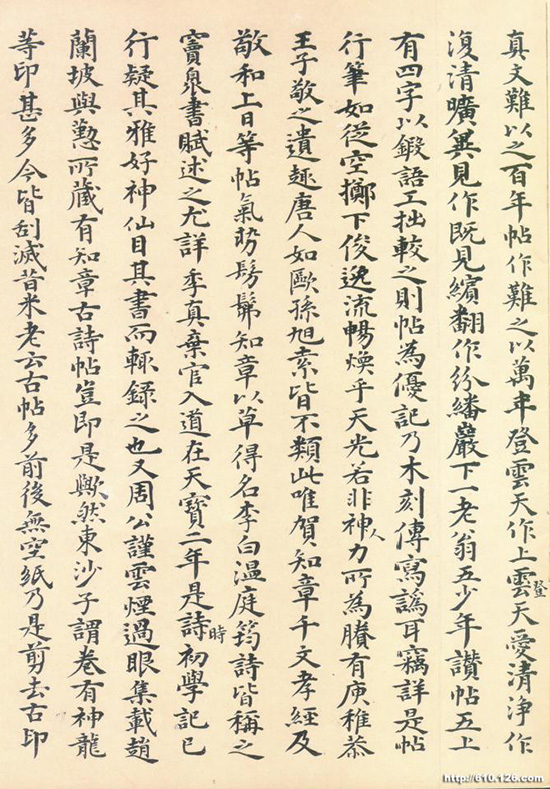 真文難以之百年帖作難之以萬年登雲天作上登雲天愛清淨作
復清曠冀見作既見繽翻作紛繙巖下一老翁五少年讚帖五上
有四字以鍛語工拙較之則帖為優記乃木刻傳寫譌耳竊詳是帖
行筆如從空擲下俊逸流暢煥乎天光若非神人力所為賸有庾稚恭
王子敬之遺趣唐人如歐孫旭素皆不類此唯賀知章千文孝經及
敬和上日等帖氣勢髣髴知章以草得名李白温庭筠詩皆稱之
竇臮書賦述之尤詳季真棄官入道在天寶二年是詩時初學記已
行疑其雅好神仙目其書而輒錄之也又周公謹雲煙過眼集載趙
蘭坡與懃所藏有知章古詩帖豈即是歟然東沙子謂卷有神龍
等印甚多今皆刮滅昔米老云古帖多前後無空紙乃是剪去古印
http://610.126.com/